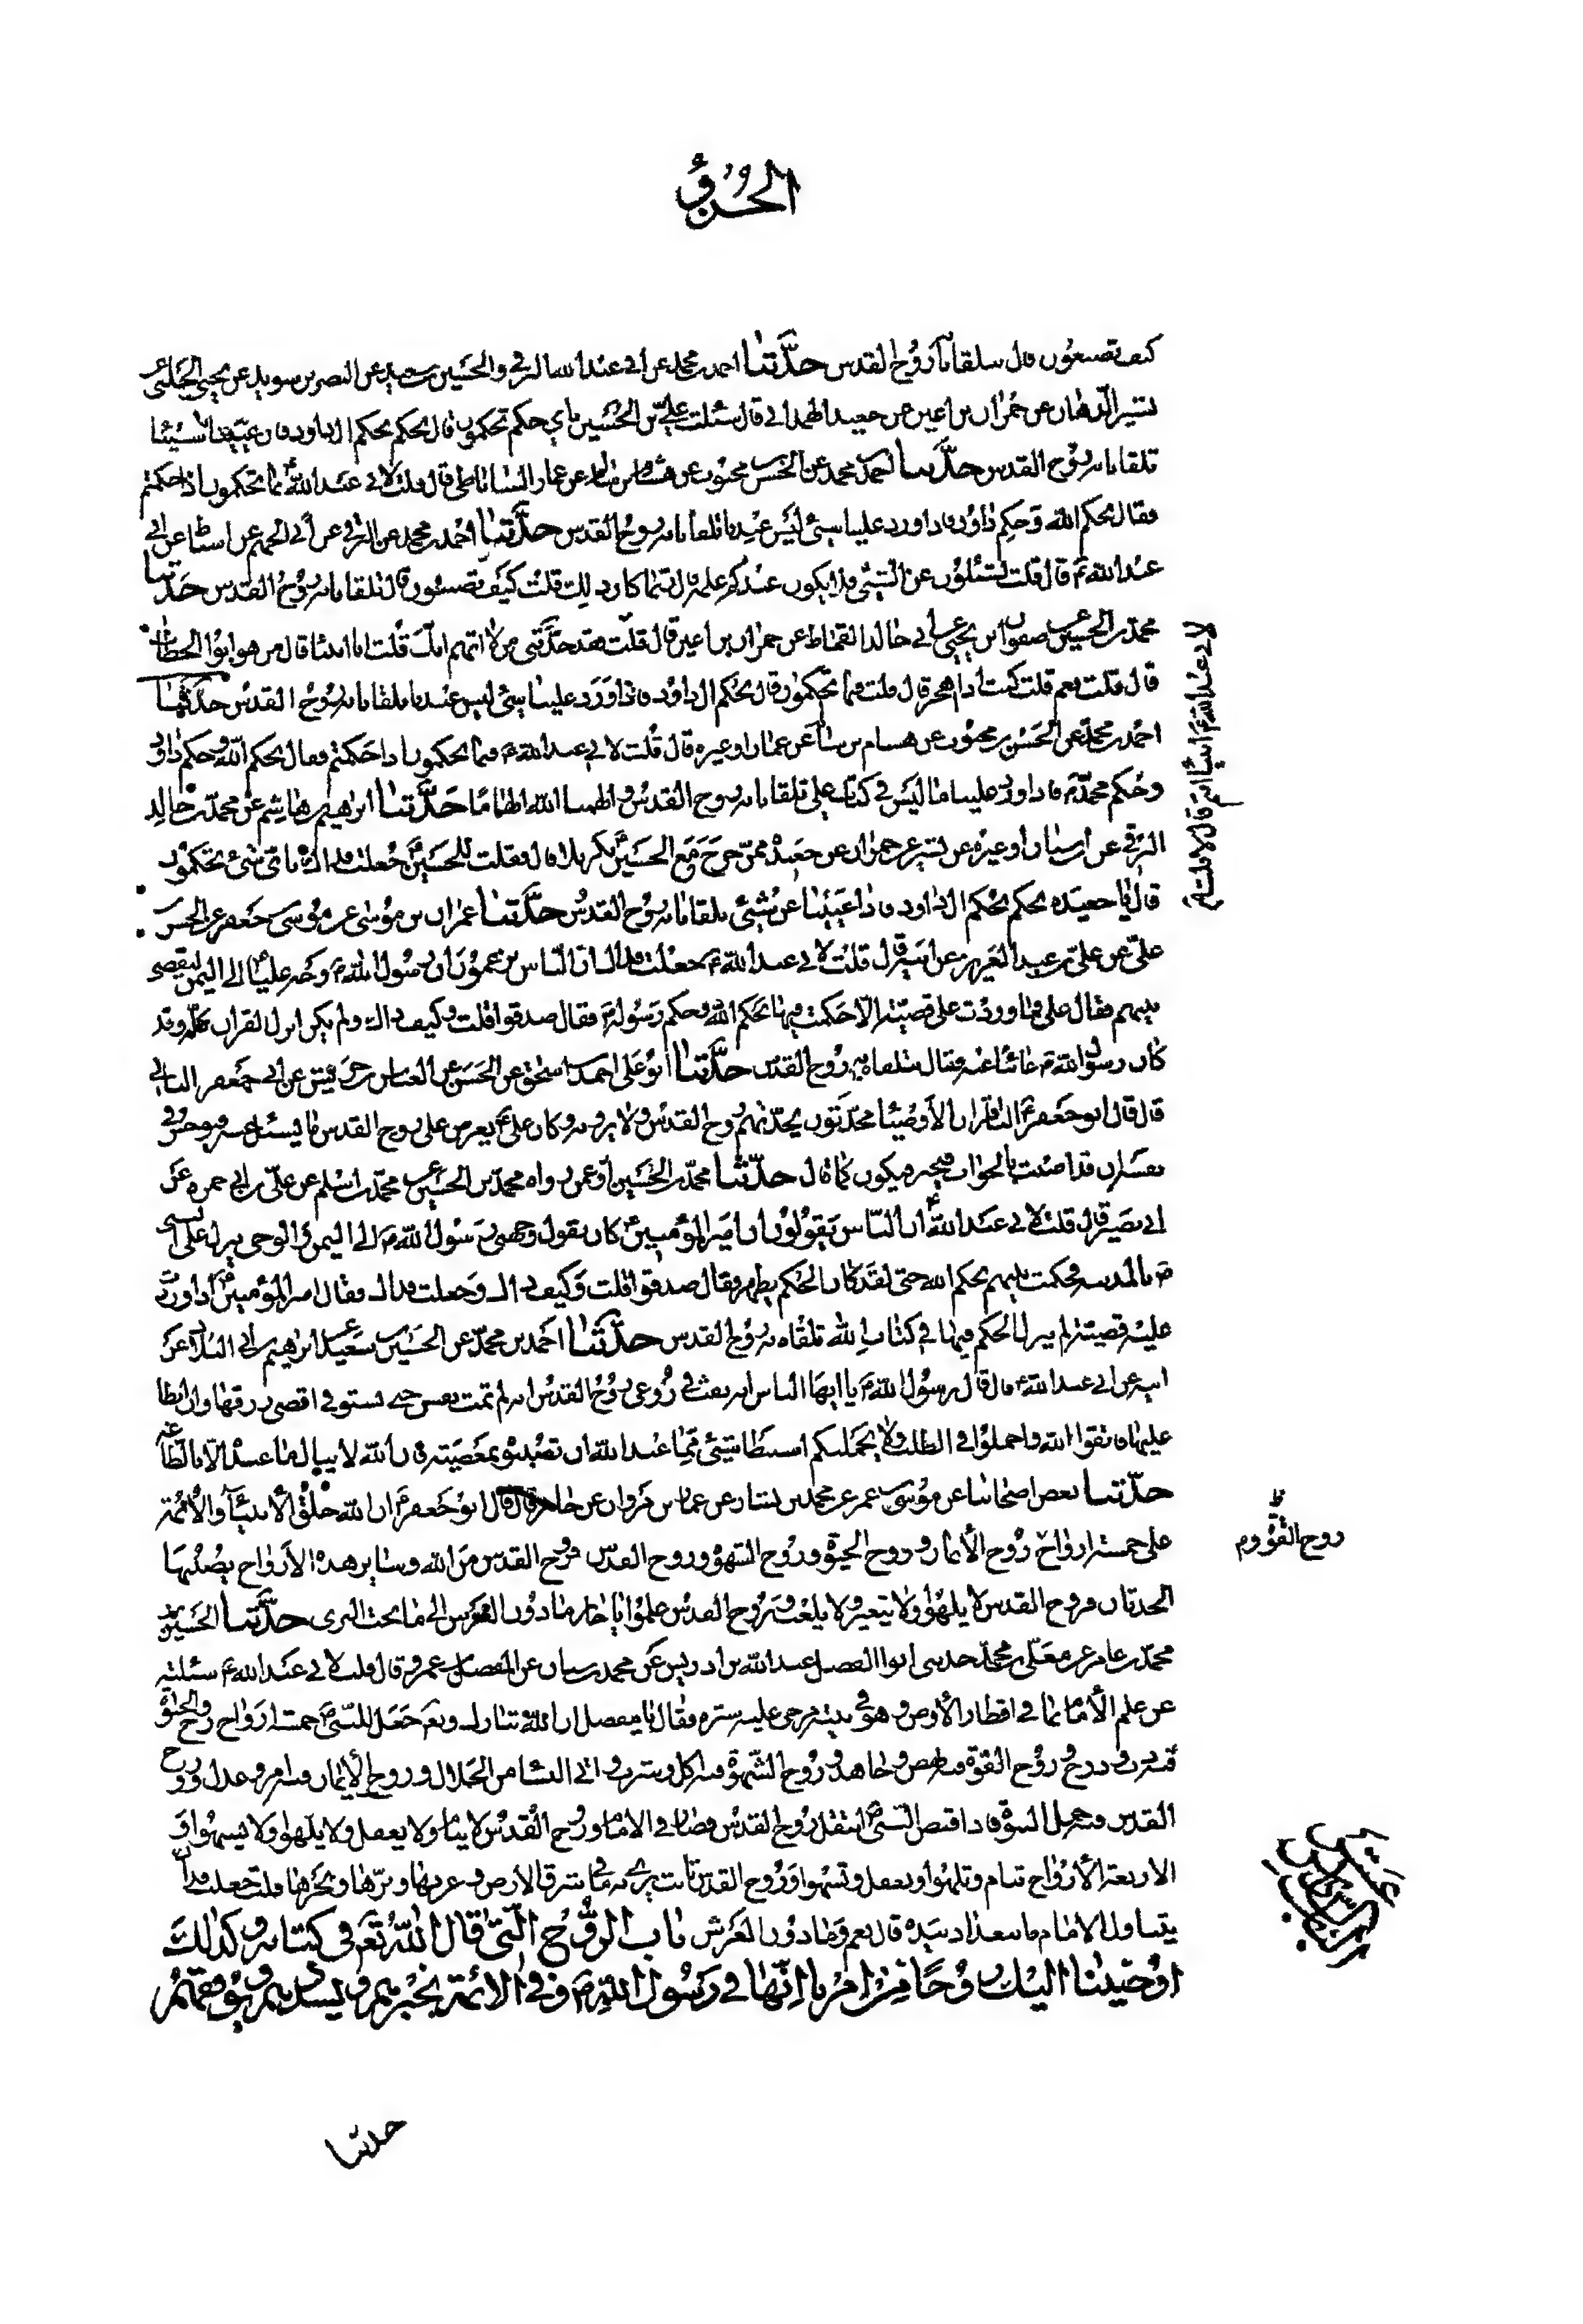 كيف تصنعون قال تلقانا به روح القدس حدّثنا احمد بن محمد عن ابي عبد الله البرقي والحسين بن سعيد عن النضر بن سويد عن يحيى الحلبي عن
بشير الدهان عن حمران بن اعين عن جعيد الهمداني قال سئلت علي بن الحسين باي حكم تحكمون قال نحكم بحكم ال داود فان عيينا شيئا
تلقانا به روح القدس حدّثنا احمد بن محمد عن الحسن بن محبوب عن هشام بن سالم عن عمار الساباطي قال قلت لابي عبد الله ع بما تحكمون اذا حكمتم
فقال بحكم الله وحكم داود فاذا ورد علينا شيئ ليس عندنا تلقانا به روح القدس حدّثنا احمد بن محمد عن البرقي عن ابي الجهم عن اسباط عن ابي
عبد الله ع قال قلت تسئلون عن الشيئ فلا يكون عندكم علمه قال ربما كان ذلك قلت كيف تصنعون قال تلقانا به روح القدس حدّثنا
محمد بن الحسين عن صفوان بن يحيى عن ابي خالد القماط عن حمران بن اعين قال قلت فقد حدّثني من لا اتهم انك قلت قال من هو ابو الخطاب
قال قلت نعم قلت كنت اذا اهجر قال قلت فبما تحكمون قال بحكم ال داود فاذا ورد علينا شيئ ليس عندنا تلقانا به روح القدس حدّثنا
احمد بن محمد عن الحسن بن محبوب عن هشام بن سالم عن عمار او غيره قال قلت لابي عبد الله ع فبما تحكمون اذا حكمتم فقال بحكم الله وحكم داود
وحكم محمد ص فاذا ورد علينا ما ليس في كتاب علي تلقانا به روح القدس والهمنا الله الهاما حدّثنا ابراهيم بن هاشم عن محمد بن خالد
البرقي عن ابن سنان او غيره عن بشير عن حمران عن جعيد همدان ممن خرج مع الحسين ع بكربلا قال فقلت للحسين ع جعلت فداك باي شيئ تحكمون
قال يا جعيد نحكم بحكم ال داود فاذا عيينا عن شيئ تلقانا به روح القدس حدّثنا عمران بن موسى عن موسى بن جعفر عن الحسن بن
علي عن علي بن عبد العزيز عن ابيه قال قلت لابي عبد الله ع جعلت فداك ان الناس يزعمون ان رسول الله ص وجه عليا الى اليمن ليقضي
بينهم فقال علي فما وردت علي قضية الا حكمت فيها بحكم الله وحكم رسوله ص فقال صدقوا قلت وكيف ذاك ولم يكن انزل القران كله وقد
كان رسول الله ص غائبا عنه فقال تتلقاه به روح القدس حدّثنا ابو علي احمد بن اسحق عن الحسن بن العباس بن حريش عن ابي جعفر الثاني
قال قال ابو جعفر الباقر ان الاوصياء محدّثون يحدّثهم روح القدس ولا يرونه وكان علي ع يعرض على روح القدس ما يسئل عنه فيوجس في
نفسه ان قد اصبت بالجواب فيخبر فيكون كما قال حدّثنا محمد بن الحسين او عمن رواه محمد بن الحسين عن محمد بن اسلم عن علي بن ابي حمزة عن
ابي بصير قال قلت لابي عبد الله ع ان الناس يقولون ان امير المؤمنين كان يقول وجهني رسول الله ص الى اليمن والوحي ينزل على النبي
ص بالمدينة فحكمت بينهم بحكم الله حتى لقد كان الحكم يظهر فقال صدقوا قلت وكيف ذاك وجعلت فداك فقال امير المؤمنين ع اذا وردت
عليه قضية لم ينزل الحكم فيها في كتاب الله تلقاه به روح القدس حدّثنا احمد بن محمد عن الحسين بن سعيد عن ابراهيم بن ابي البلاد عن
ابيه عن ابي عبد الله ع قال قال رسول الله ص يا ايها الناس انه نفث في روعي روح القدس انه لم تمت نفس حتى تستوفي اقصى رزقها وان ابطأ
عليها فاتقوا الله واجملوا في الطلب ولا يحملنكم استبطاء شيئ مما عند الله ان تصيبوه بمعصيته فان الله لا ينال ما عنده الا بالطاعة
حدّثنا بعض اصحابنا عن موسى بن عمر عن محمد بن بشار عن عمار بن مروان عن جابر قال قال ابو جعفر ع ان الله خلق الانبياء والائمة
على خمسة ارواح روح الايمان وروح الحيوة وروح الشهوة وروح القدس فروح القدس من الله وساير هذه الارواح يصيبها
الحدثان فروح القدس لا يلهو ولا يتغير ولا يلعب وبروح القدس علموا يا جابر ما دون العرش الى ما تحت الثرى حدّثنا الحسين بن
محمد بن عامر عن معلى بن محمد حدثني ابو الفضل عبد الله بن ادريس عن محمد بن سنان عن المفضل بن عمر قال قلت لابي عبد الله ع سئلته
عن علم الامام بما في اقطار الارض وهو في بيته مرخى عليه ستره فقال يا مفضل ان الله تبارك وتعالى جعل للنبي ص خمسة ارواح روح الحيوة
فبه دب ودرج وروح القوة فبه نهض وجاهد وروح الشهوة فبه اكل وشرب واتى النساء من الحلال وروح الايمان فبه امر وعدل وروح
القدس فبه حمل النبوة فاذا قبض النبي ص انتقل روح القدس فصار في الامام وروح القدس لا ينام ولا يغفل ولا يلهو ولا يسهو و
الاربعة الارواح تنام وتلهو وتغفل وتسهو وروح القدس ثابت يرى به ما في شرق الارض وغربها وبرها وبحرها قلت جعلت فداك
يتناول الامام ما ببغداد بيده قال نعم وما دون العرش باب الروح التي قال الله تعالى في كتابه وكذلك
اوحينا اليك روحا من امرنا انها في رسول الله ص وفي الائمة يخبرهم ويسددهم ويوفقهم
حدثنا